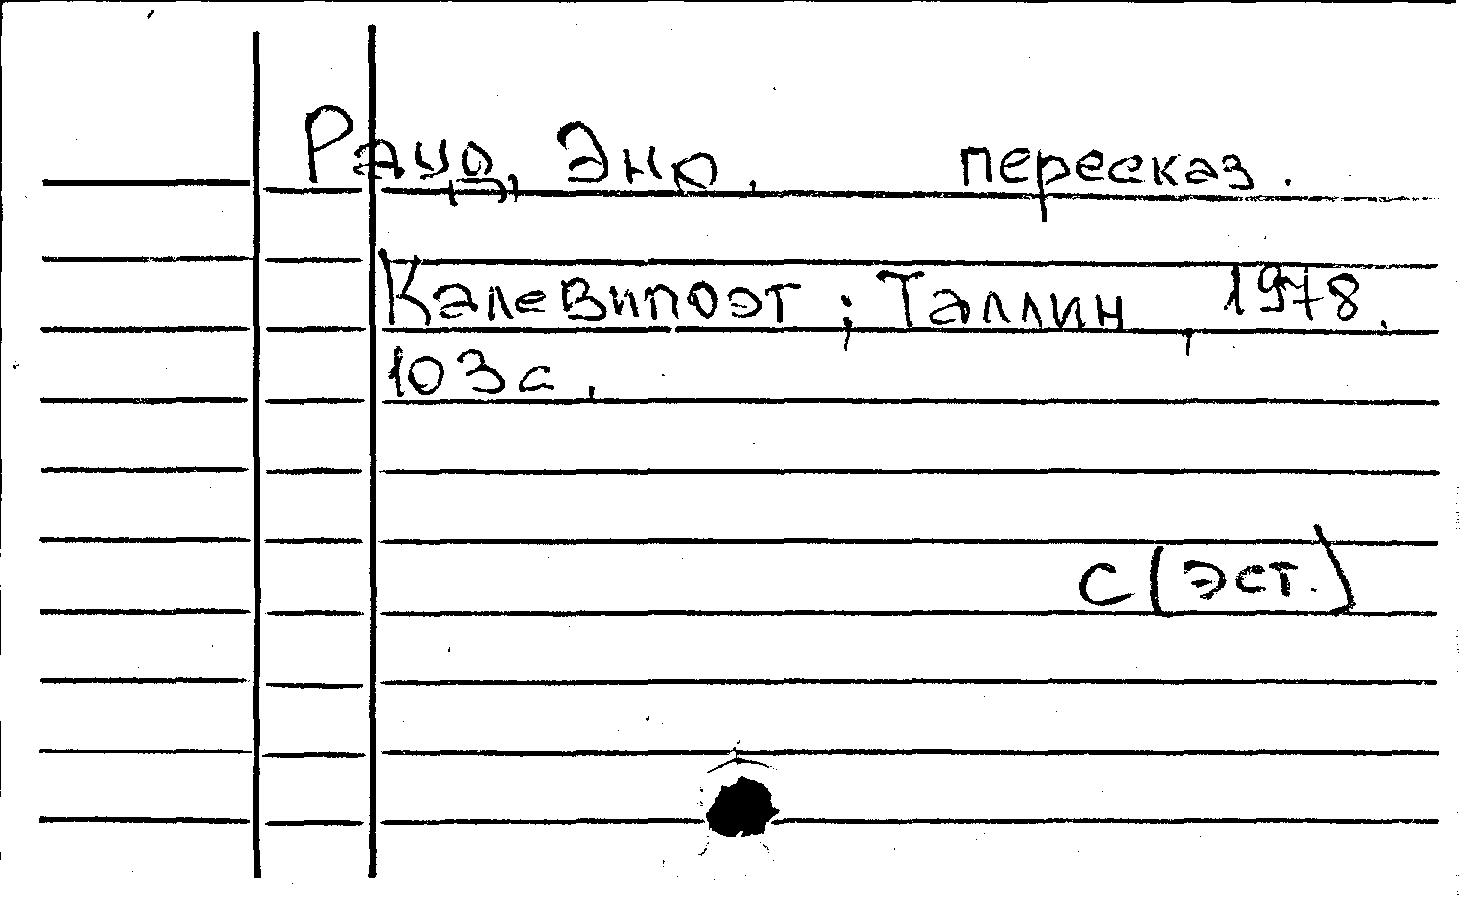 Рауд, Эно. пересказ.
Калевипоэт ; Таллин, 1978.
103 с.
С (эст.)